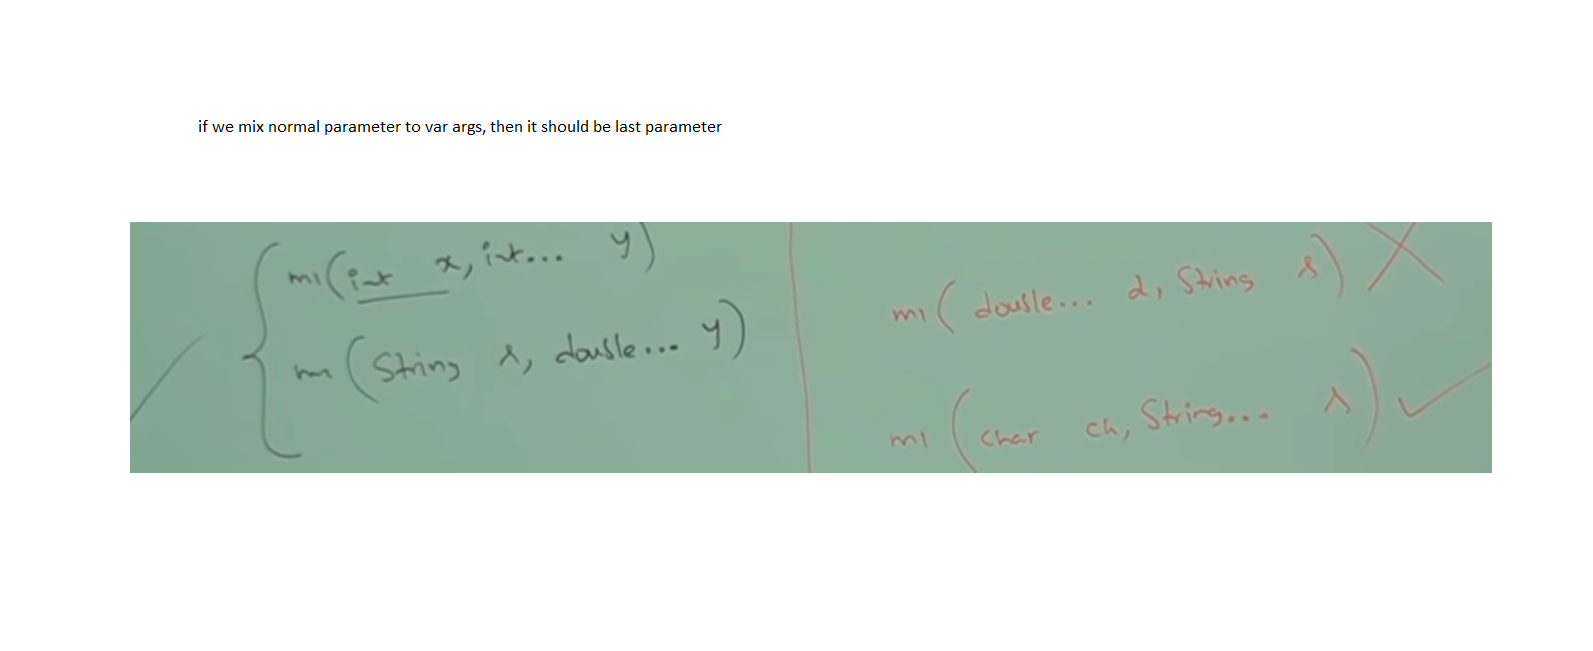 if we mix normal parameter to var args, then it should be last parameter
m1(int x, int... y)
m1(String s, double... y)
m1(double... d, String s)
m1(char ch, String... s)